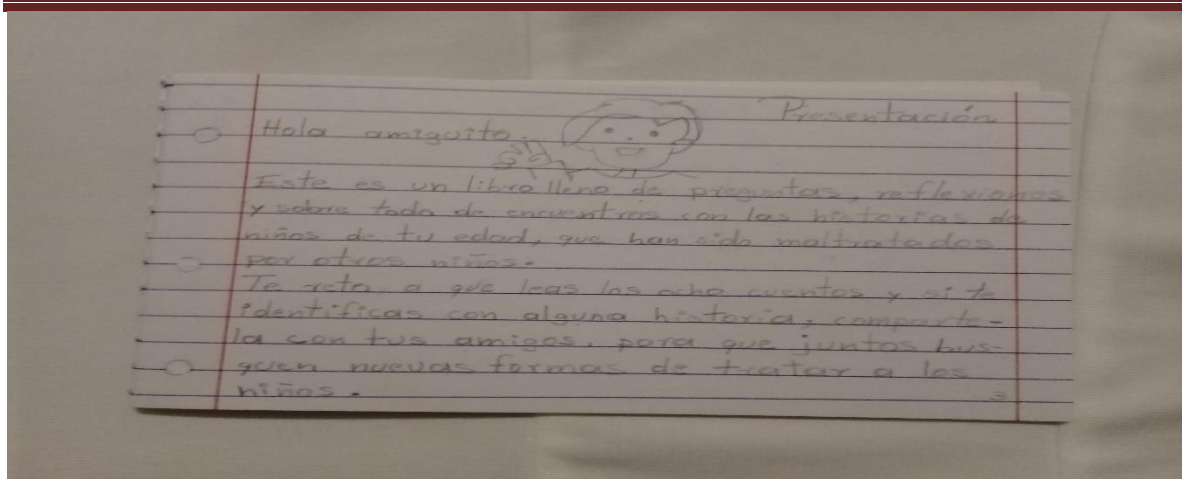 Presentación
Hola amiguito.
Este es un libro lleno de preguntas, reflexiones
y sobre todo de encuentros con las historias de
niños de tu edad, que han sido maltratados
por otros niños.
Te reto a que leas los ocho cuentos y si te
identificas con alguna historia, comparte-
la con tus amigos, para que juntos bus-
quen nuevas formas de tratar a los
niños.
3